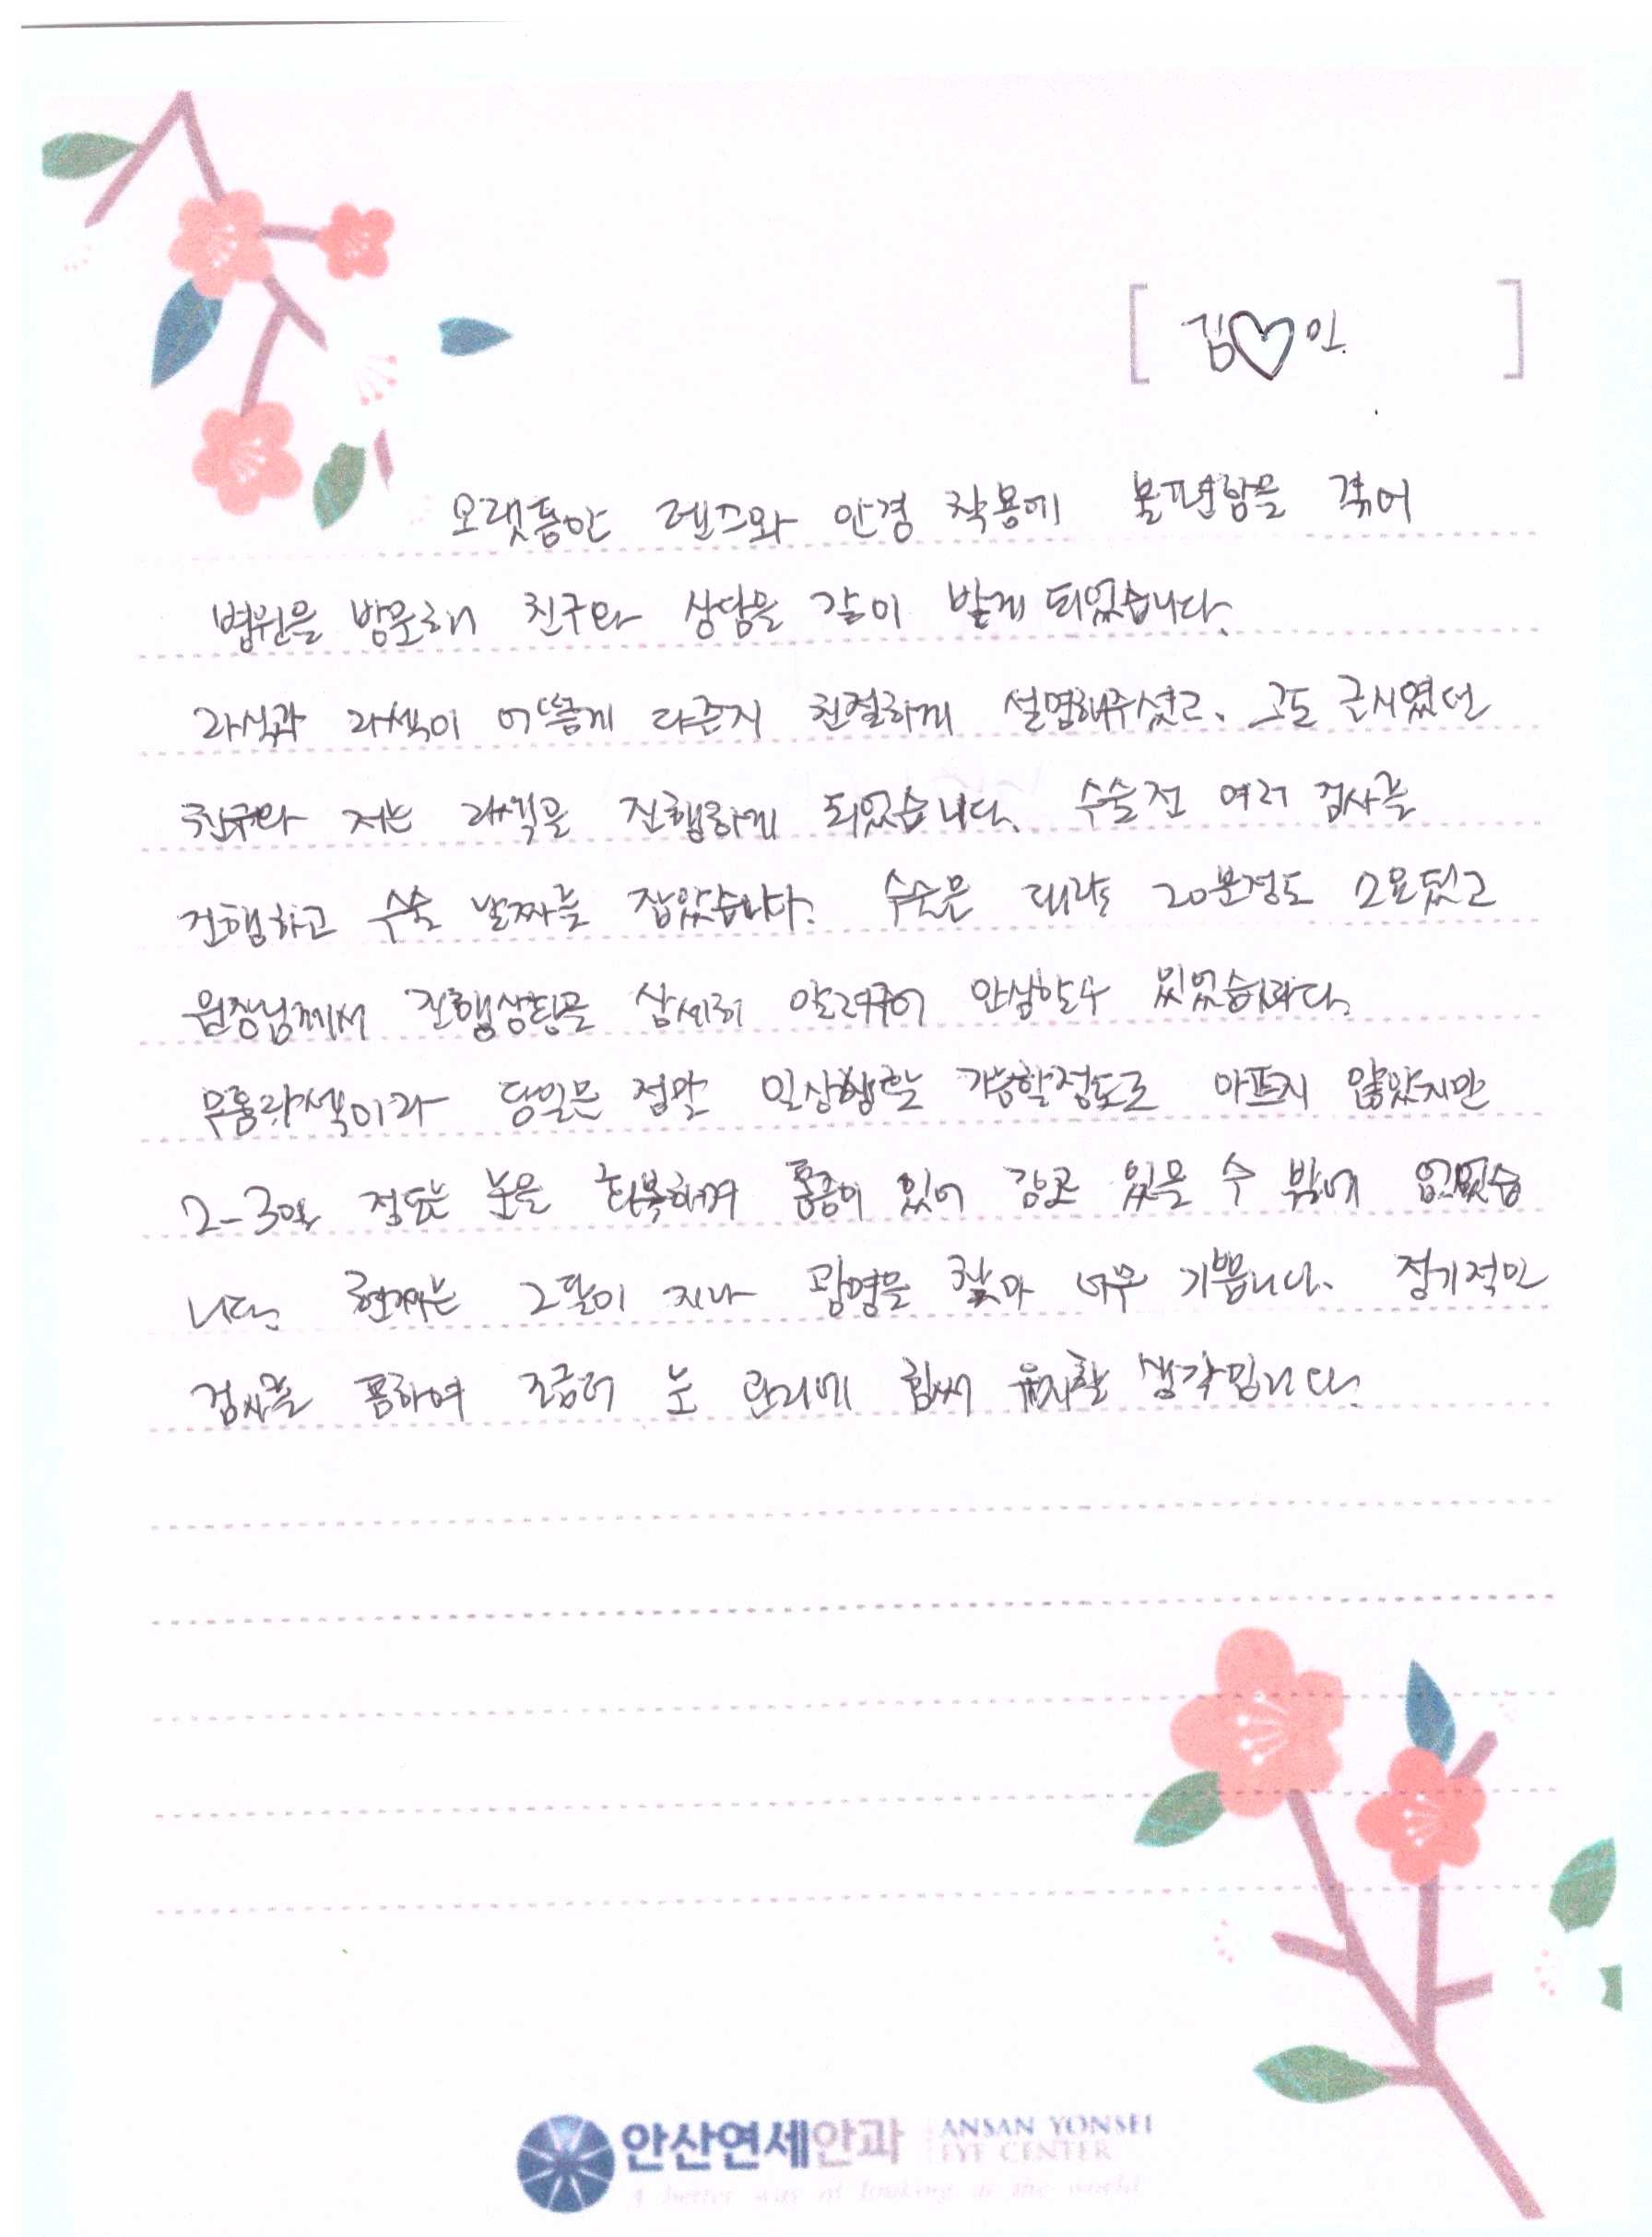 [ 김♡인. ]
오랫동안 렌즈와 안경 착용에 불편함을 겪어
병원을 방문해 친구와 상담을 같이 받게 되었습니다.
라식과 라섹이 어떻게 다른지 친절하게 설명해주셨고, 고도 근시였던
친구와 저는 라섹을 진행하게 되었습니다. 수술전 여러 검사를
진행하고 수술 날짜를 잡았습니다. 수술은 대략 20분정도 소요됐고
원장님께서 진행상황을 상세히 알려주어 안심할수 있었습니다.
무통라섹이라 당일은 정말 일상생활 가능할정도로 아프지 않았지만
2-3일 정도는 눈을 회복하며 통증이 있어 감고 있을 수 밖에 없었습
니다. 현재는 2달이 지나 광명을 찾아 너무 기쁩니다. 정기적인
검사를 통하여 조금더 눈 관리에 힘써 유지할 생각입니다.
안산연세안과 ANSAN YONSEI
EYE CENTER
A better way of looking at the world